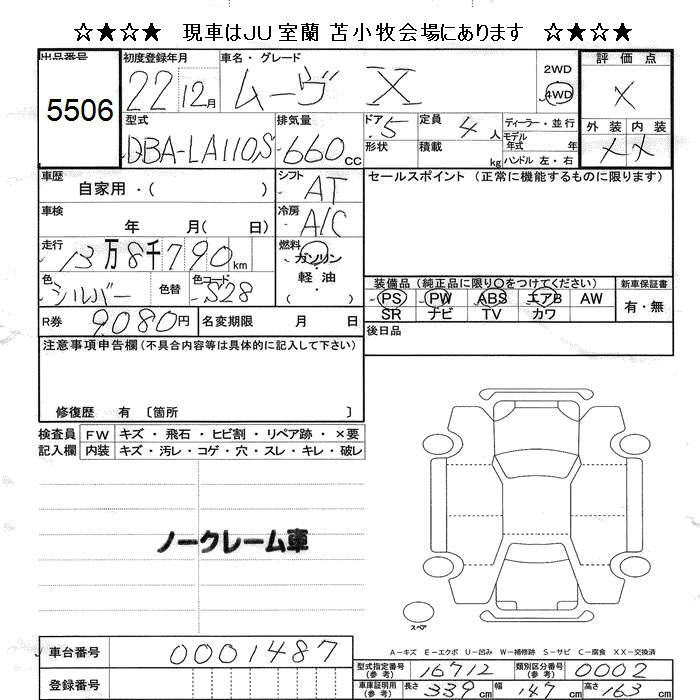 ☆★☆★ 現車はJU室蘭 苫小牧会場にあります ☆★☆★
出品番号
5506
初度登録年月
22 12月
車名・グレード
ムーヴ X
2WD
4WD
評価点
X
外装 内装
X X
型式
DBA-LA110S
排気量
660cc
ドア 5
形状
定員 4人
積載 kg
ディーラー・並行
モデル年式 年
ハンドル 左・右
車歴
自家用・( )
シフト
AT
車検
年 月( 日)
冷房
A/C
走行
13万8千790km
燃料
ガソリン
軽油
( )
色
シルバー
色替
色コード
S28
R券 9080円
名変期限 月 日
セールスポイント(正常に機能するものに限ります)
装備品(純正品に限り○をつけてください)
新車保証書
PS PW ABS エアB AW
SR ナビ TV カワ
有・無
後日品
注意事項申告欄(不具合内容等は具体的に記入して下さい)
修復歴 有〔箇所 〕
検査員記入欄
FW キズ・飛石・ヒビ割・リペア跡・×要
内装 キズ・汚レ・コゲ・穴・スレ・キレ・破レ
ノークレーム車
スペア
A-キズ E-エクボ U-凹み W-補修跡 S-サビ C-腐食 XX-交換済
車台番号
0001487
登録番号
型式指定番号(参考) 16712
類別区分番号(参考) 0002
車庫証明用(参考) 長さ 339cm 幅 147cm 高さ 163cm